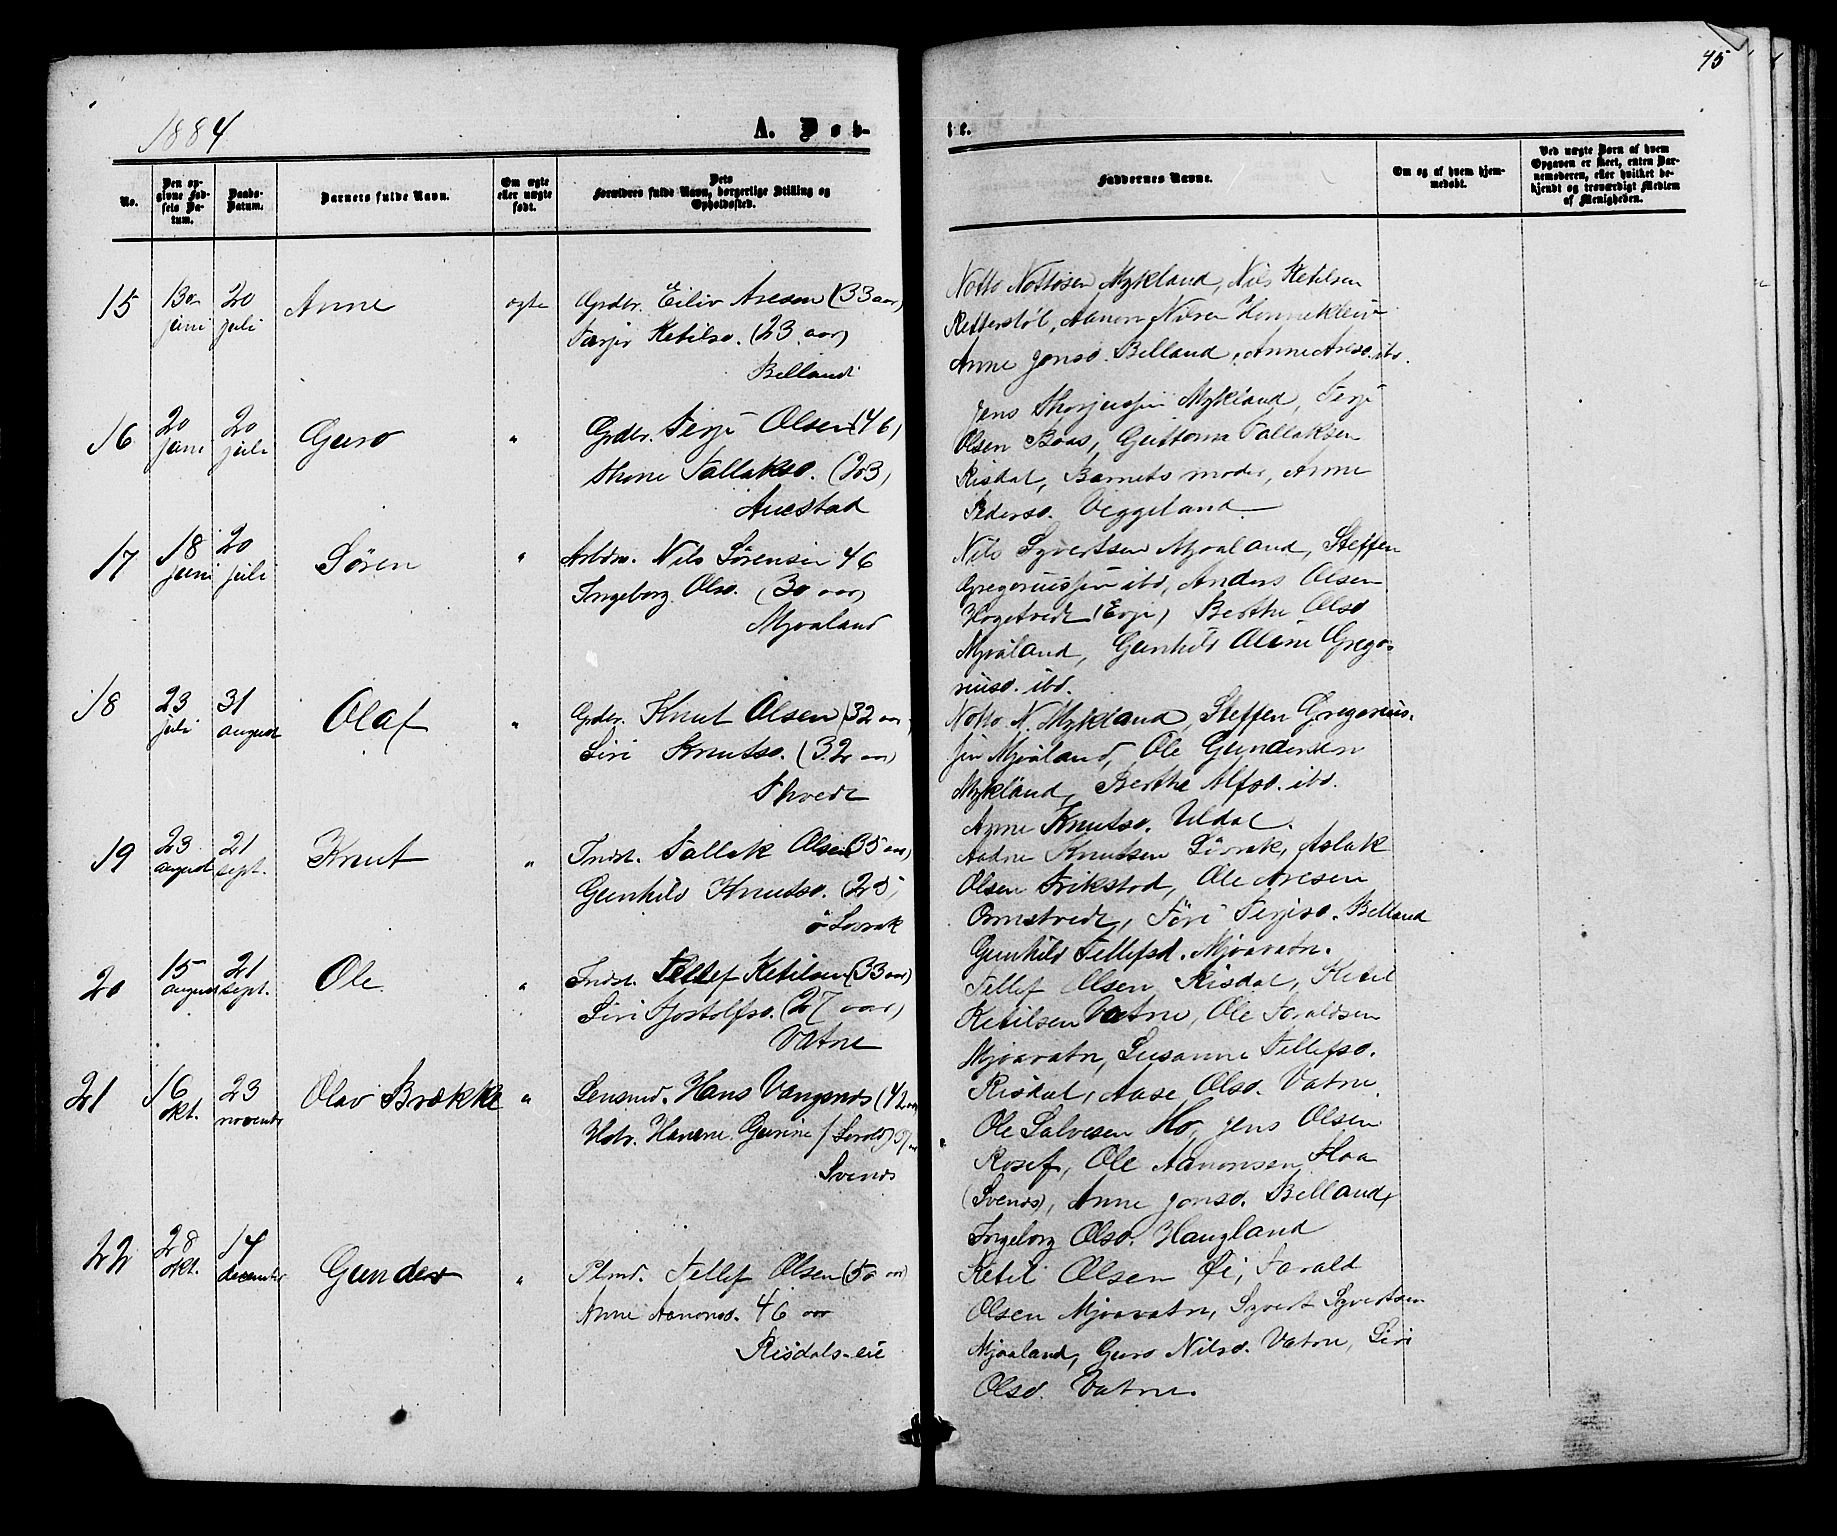 45
1884
A. Døb-
te.
No.
Den opgivne Fødsels Datum.
Daabs-Datum.
Barnets fulde Navn.
Om ægte eller uægte født.
Dets Forældres fulde Navn, borgerlige Stilling og Opholdssted.
Faddernes Navne.
Om og af hvem hjemmedøbt.
Ved uægte Børn af hvem Opgaven er skeet, enten Barnemoderen, eller hvilket bekjendt og troværdigt Medlem af Menigheden.
15 juni 20 juli Anne ægte Grdbr. Eiliv Aresen (33 aar)
Tarjer Ketilsd. (23 aar)
Belland
Notto Nottosen Mykland, Nils Ketilsen
Retterstøl, Aanon
Anne Jonsd. Belland, Anne Aresd. ibd.
16 20 juni 20 juli Guro " Grdbr. Terje Olsen (46)
Tallaksd. (23)
Auestad
Jens Mykland, Terje
Olsen Boas, Guttorm Tallaksen
Risdal, Barnets moder, Anne
Pedersd. Viggeland
17 18 juni 20 juli Søren " Arbdm. Nils Sørensen 46
Ingeborg Olsd. (30 aar)
Mjvaland
Nils Syvertsen Mjvaland, Steffen
Gregoriussen ibd, Anders Olsen
Høgetvedt (Evje) Berthe Olsd
Mjåland, Gunhild Oline Grego-
riusd. ibd.
18 23 juli 31 august Olaf " Grdbr. Knut Olsen (32 aar)
Siri Knutsd. (32 aar)
Notto N. Mykland, Steffen Gregorius-
sen Mjåland, Ole Gundersen
Mykland, Berthe Alfsd. ibd.
Anne Knutsd. Uldal.
19 23 august 21 sept. Knut " Indst. Tallak Olsen (35 aar)
Gunhild Knutsd. (25)
ø Lovrak
Aadne Knutsen Løvrak, Aslak
Olsen Frikstad, Ole Aresen
Ormstvedt, Terjesd. Belland
Gunhild Tellefsd. Mjaavatn.
20 15 august 21 sept. Ole " Indst. Tellef Ketilsen (33 aar)
Siri Tjostolfsd. (27 aar)
Vatne
Tellef Olsen Risdal, Ketil
Ketilsen Vatne, Ole Taraldsen
Mjaavatn, Susanne Tellefsd.
Risdal, Aase Olsd. Vatne.
21 16 okt. 23 november Olav Brække " Lensmd. Hans Vangsnes (42 aar)
Hstr. Hanne Gurine
Svends
Ole Salvesen Ho, Jens Olsen
Rosef, Ole Aanonsen Hoa
(Svends), Anne Jonsd. Belland,
Ingeborg Olsd. Haugland
22 28 okt. 14 december Gunder " Plmd. Tellef Olsen (50 aar)
Anne Aanonsd. 46 aar
Risdals-eie
Ketil Olsen Øi, Tarald
Olsen Mjaavatn, Syvert Syvertsen
Mjaaland, Guro Nilsd. Vatne, Siri
Olsd. Vatne.